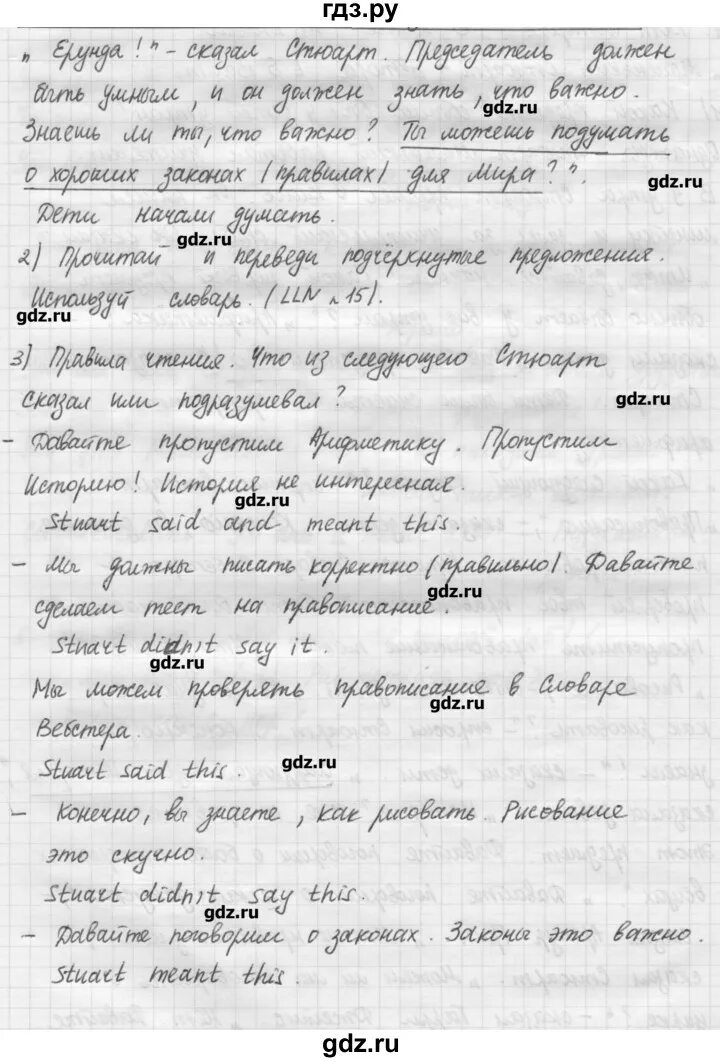 гдз.ру
„ Ерунда!" – сказал Стюарт. Председатель должен
быть умным, и он должен знать, что важно.
gdz.ru
Знаешь ли ты, что важно? Ты можешь подумать
о хороших законах /правилах/ для Мира?".
gdz.ru
Дети начали думать.
gdz.ru
2) Прочитай и переведи подчёркнутые предложения.
Используй словарь. (LLN n 15).
gdz.ru
3] Правила чтения. Что из следующего Стюарт
сказал или подразумевал?
gdz.ru
– Давайте пропустим Арифметику. Пропустим
Историю! История не интересная.
gdz.ru
Stuart said and meant this.
– Мы должны писать корректно /правильно/ Давайте
gdz.ru
сделаем тест на правописание.
Stuart didn,t say it.
gdz.ru
Мы можем проверять правописание в Словаре
gdz.ru
Вебстера.
Stuart said this.
gdz.ru
– Конечно, вы знаете, как рисовать. Рисование
это скучно.
Stuart didn,t say this.
gdz.ru
– Давайте поговорим о законах. Законы это важно.
gdz.ru
Stuart meant this.
gdz.ru